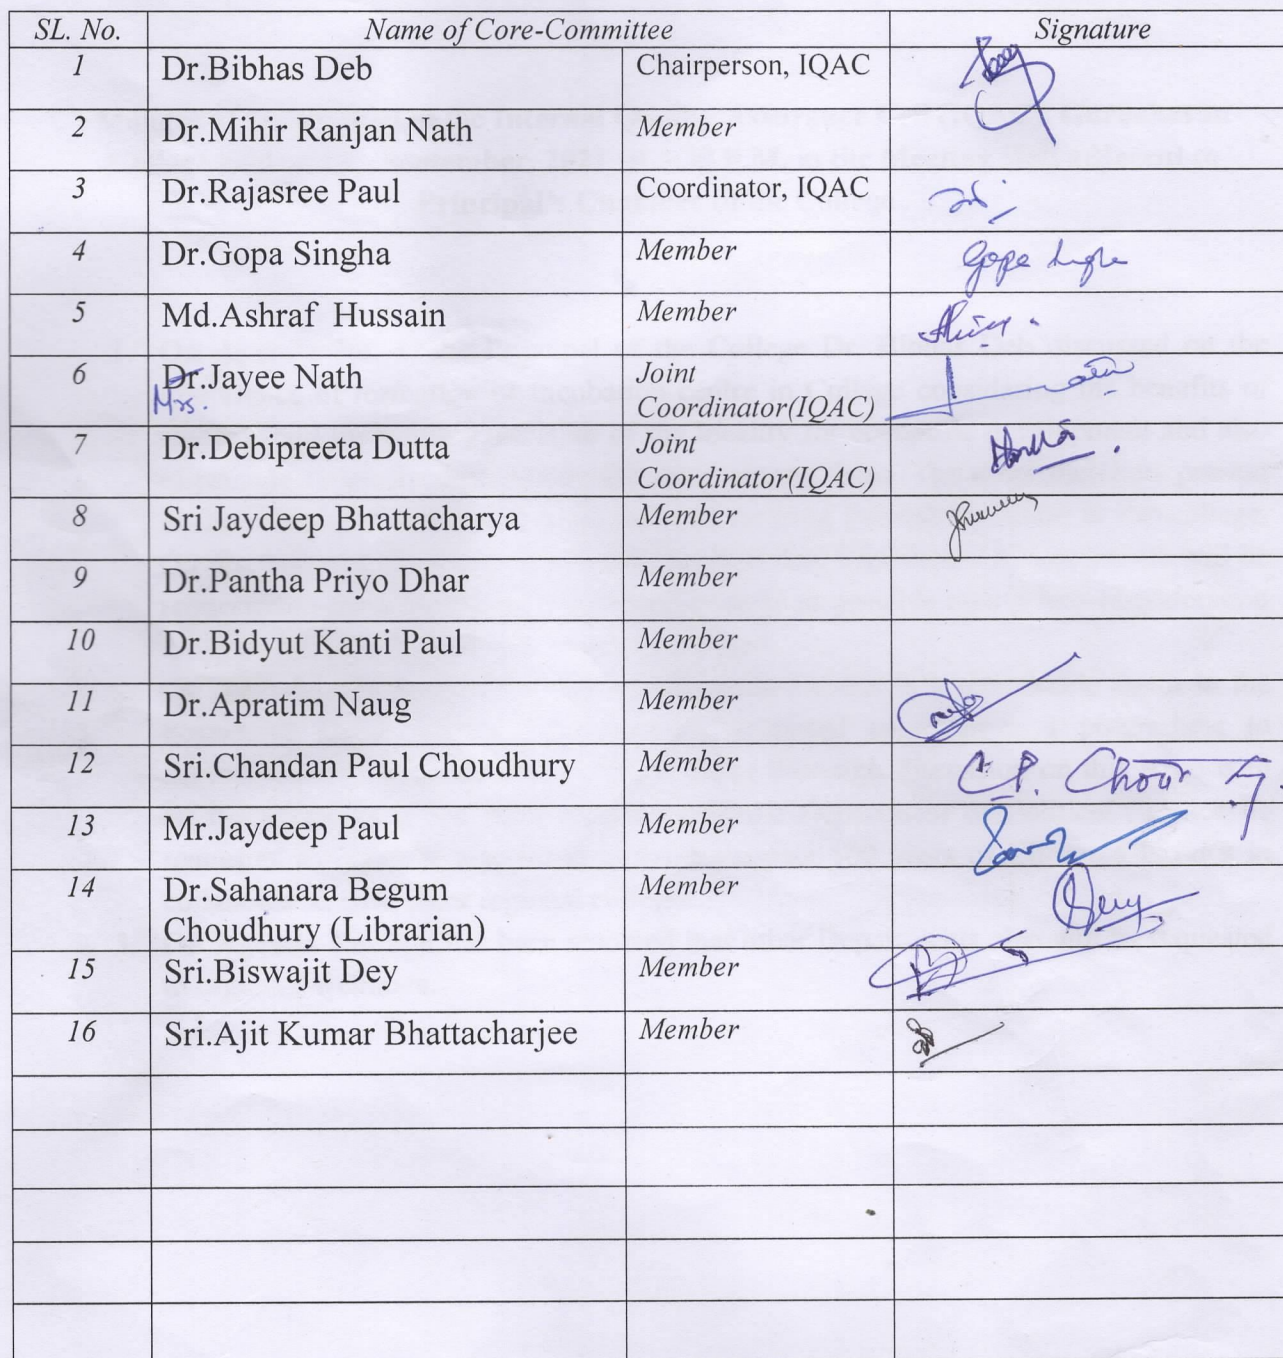 SL. No. Name of Core-Committee Signature
1 Dr.Bibhas Deb Chairperson, IQAC
2 Dr.Mihir Ranjan Nath Member
3 Dr.Rajasree Paul Coordinator, IQAC
4 Dr.Gopa Singha Member Gopa Singha
5 Md.Ashraf Hussain Member
6 Dr.Jayee Nath Joint
Mrs. Coordinator(IQAC)
7 Dr.Debipreeta Dutta Joint
Coordinator(IQAC)
8 Sri Jaydeep Bhattacharya Member
9 Dr.Pantha Priyo Dhar Member
10 Dr.Bidyut Kanti Paul Member
11 Dr.Apratim Naug Member
12 Sri.Chandan Paul Choudhury Member C.P. Choudhury
13 Mr.Jaydeep Paul Member
14 Dr.Sahanara Begum Member
Choudhury (Librarian)
15 Sri.Biswajit Dey Member
16 Sri.Ajit Kumar Bhattacharjee Member